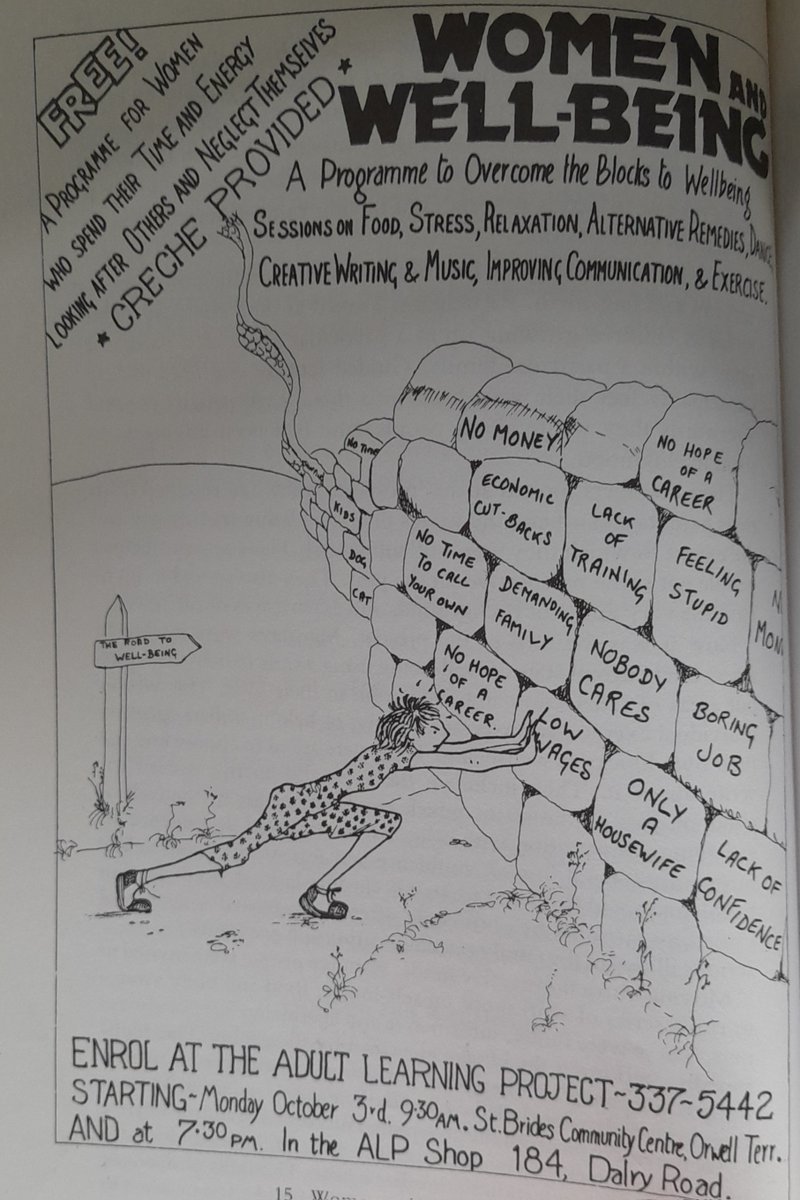 FREE!
A PROGRAMME FOR WOMEN
WHO SPEND THEIR TIME AND ENERGY
LOOKING AFTER OTHERS AND NEGLECT THEMSELVES
★ CRECHE PROVIDED ★
WOMEN AND
WELL-BEING
A Programme to Overcome the Blocks to Wellbeing
SESSIONS ON FOOD, STRESS, RELAXATION, ALTERNATIVE REMEDIES, DANCE,
CREATIVE WRITING & MUSIC, IMPROVING COMMUNICATION, & EXERCISE.
NO TIME
NO MONEY
NO HOPE
OF A
CAREER
KIDS
ECONOMIC
CUT-BACKS
LACK
OF
TRAINING
FEELING
STUPID
DOG
CAT
NO TIME
TO CALL
YOUR OWN
DEMANDING
FAMILY
NOBODY
CARES
BORING
JOB
THE ROAD TO
WELL-BEING
NO HOPE
OF A
CAREER.
LOW
WAGES
ONLY
A
HOUSEWIFE
LACK OF
CONFIDENCE
ENROL AT THE ADULT LEARNING PROJECT~337~5442
STARTING~Monday October 3rd. 9·30AM. St.Brides Community Centre, Orwell Terr.
AND at 7·30PM. In the ALP Shop 184, Dalry Road.